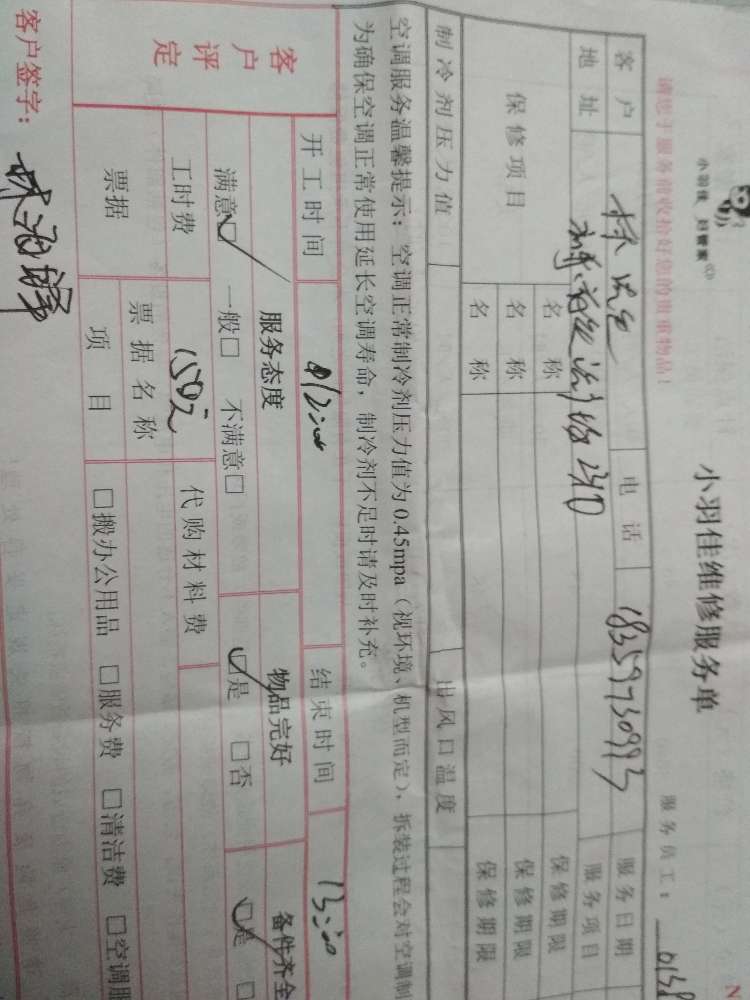 小羽佳 好管家
小羽佳维修服务单
N
请您于服务前收拾好您的贵重物品！
服务员工：
客户 电话 18359730993 服务日期
地址 服务项目
保修项目 名称 保修期限
名称 保修期限
名称 保修期限
制冷剂压力值 出风口温度
空调服务温馨提示：空调正常制冷剂压力值为0.45mpa（视环境、机型而定），拆装过程会对空调制
为确保空调正常使用延长空调寿命，制冷剂不足时请及时补充。
开工时间 12:00 结束时间 13:00
客户评定 服务态度 物品完好 备件齐全
满意□ 一般□ 不满意□ □是 □否 □是 □
工时费 150元 代购材料费
票据 票据名称
项目 □搬办公用品 □服务费 □清洁费 □空调服
客户签字：